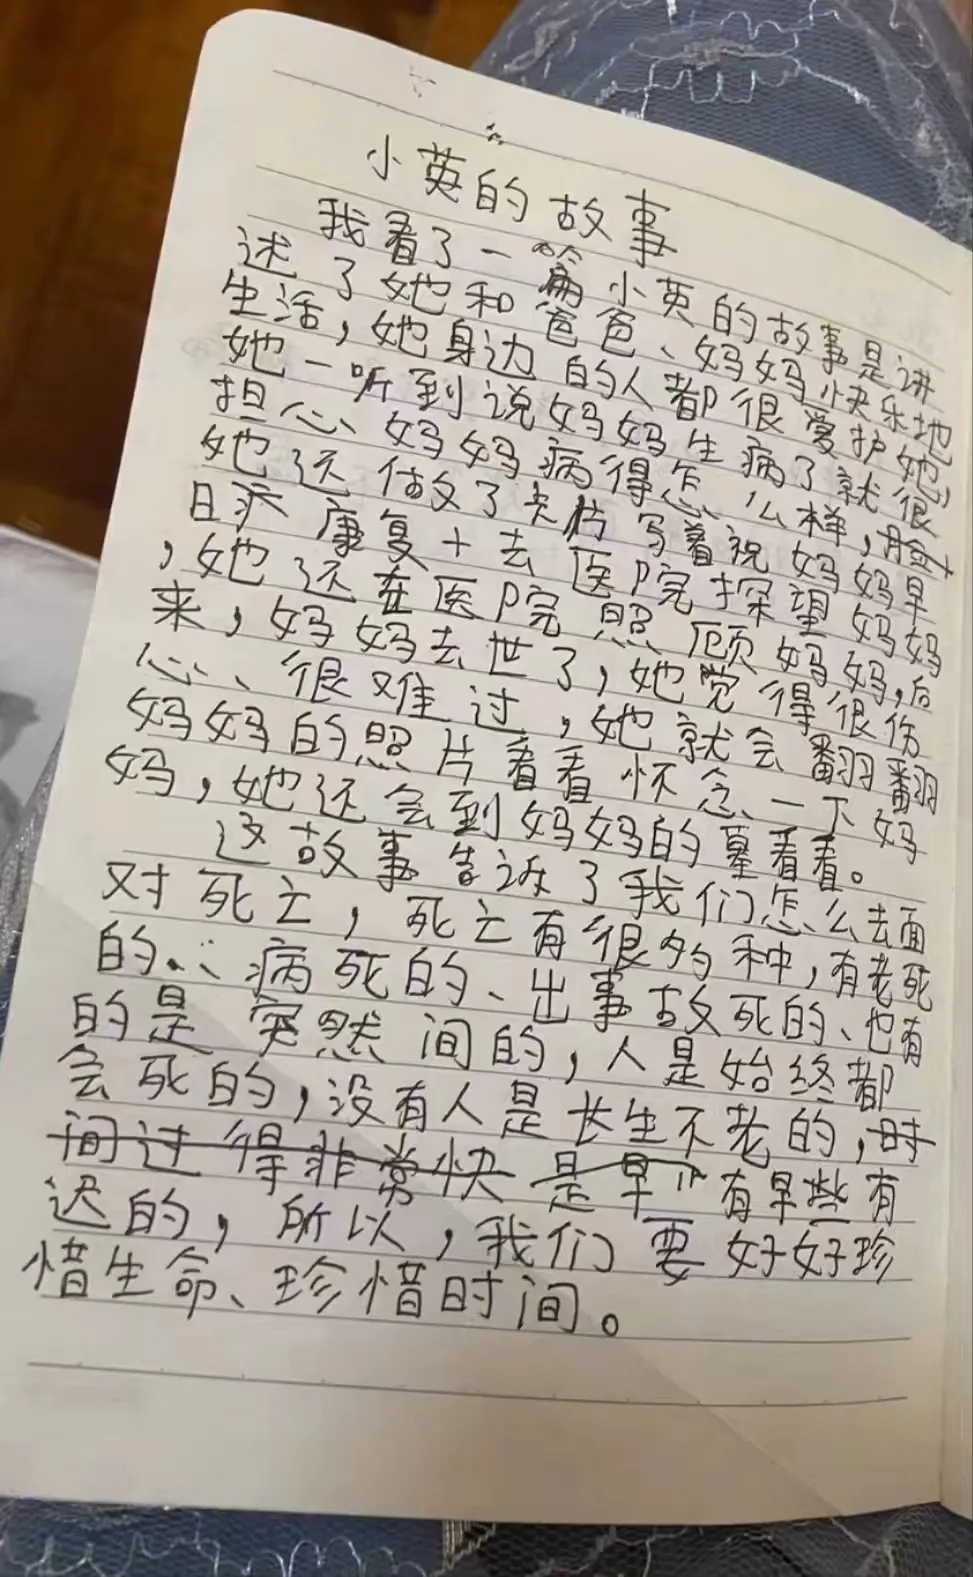 小英的故事
我看了一篇小英的故事是讲
述了她和爸爸、妈妈快乐地
生活，她身边的人都很爱护她，
她一听到说妈妈生病了就很
担心妈妈病得怎么样，
她还做了卡片写着祝妈妈早
日康复＋去医院探望妈妈
，她还在医院照顾妈妈，后
来，妈妈去世了，她觉得很伤
心、很难过，她就会翻翻
妈妈的照片看看怀念一下妈
妈，她还会到妈妈的墓看看。
这故事告诉了我们怎么去面
对死亡，死亡有很多种，有老死
的、病死的、出事故死的、也有
的是突然间的，人是始终都
会死的，没有人是长生不老的，时
间过得非常快是早有早些有
迟的，所以，我们要好好珍
惜生命、珍惜时间。